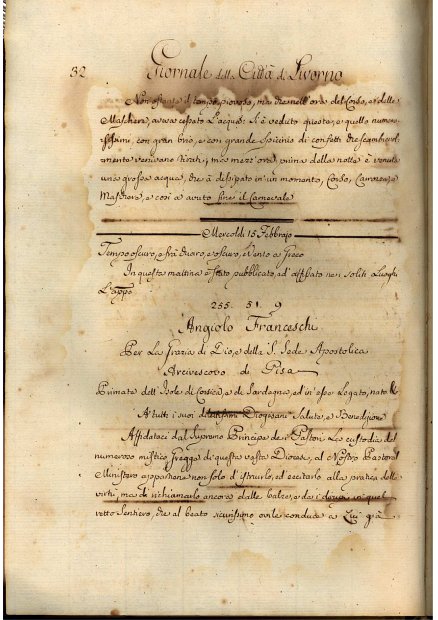 32 Giornale della Città di Livorno
Non ostante il tempo piovoso, ma che nell'ora del Corso, e delle
Maschere, aveva cessato l'acqua: Si è veduto questo, e quello numero=
sissimi, con gran brio, e con grande spicinio di confetti che scambievol
mente venivano tirati; ma mezz'ora prima della notte è venuta
una grossa acqua, che à dissipato in un momento, Corso, Carrozze, e
Maschere, e così à avuto fine il Carnevale
Mercoldì 15 Febbraio
Tempo oscuro, e frà chiaro, e oscuro, Vento a Greco
In questa mattina è stato pubblicato, ed' affissato nei soliti Luoghi
L'app.
235. 51. 9
Angiolo Franceschi
Per La Grazia di Dio, e della S. Sede Apostolica
Arcivescovo di Pisa
Primate dell'Isole di Corsica, e di Sardegna, ed in esse Legato nato &
A' tutti i suoi dilettissimi Diogesani Salute, e Benedizione
Affidataci dal Supremo Principe de i Pastori La custodia del
numeroso mistico Gregge di questa vasta Diocesi, al Nostro Pastoral
Ministero appartiene non solo d'istruirlo, ed eccitarlo alla pratica delle
virtù, ma di richiamarlo ancora dalle balze, e da i in quel
retto Sentiero, che al beato sicurissimo ovile conduce, a Lui già